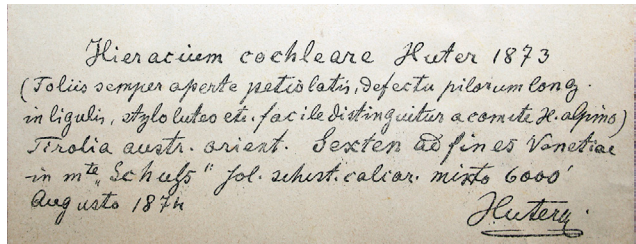 Hieracium cochleare Huter 1873
(Foliis semper aperte petiolatis, defectu pilorum long.
in ligulis, stylo luteo etc. facile distinguitur a comite H. alpino)
Tirolia austr. orient. Sexten ad fines Venetiae
in mte „Schuss“ sol. schist. calcar. mixto 6000'
Augusto 1874
Huter